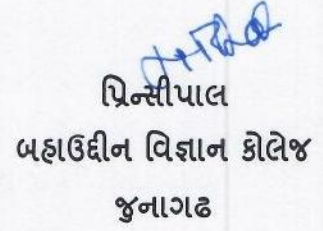 પ્રિન્સીપાલ
બહાઉદ્દીન વિજ્ઞાન કોલેજ
જુનાગઢ